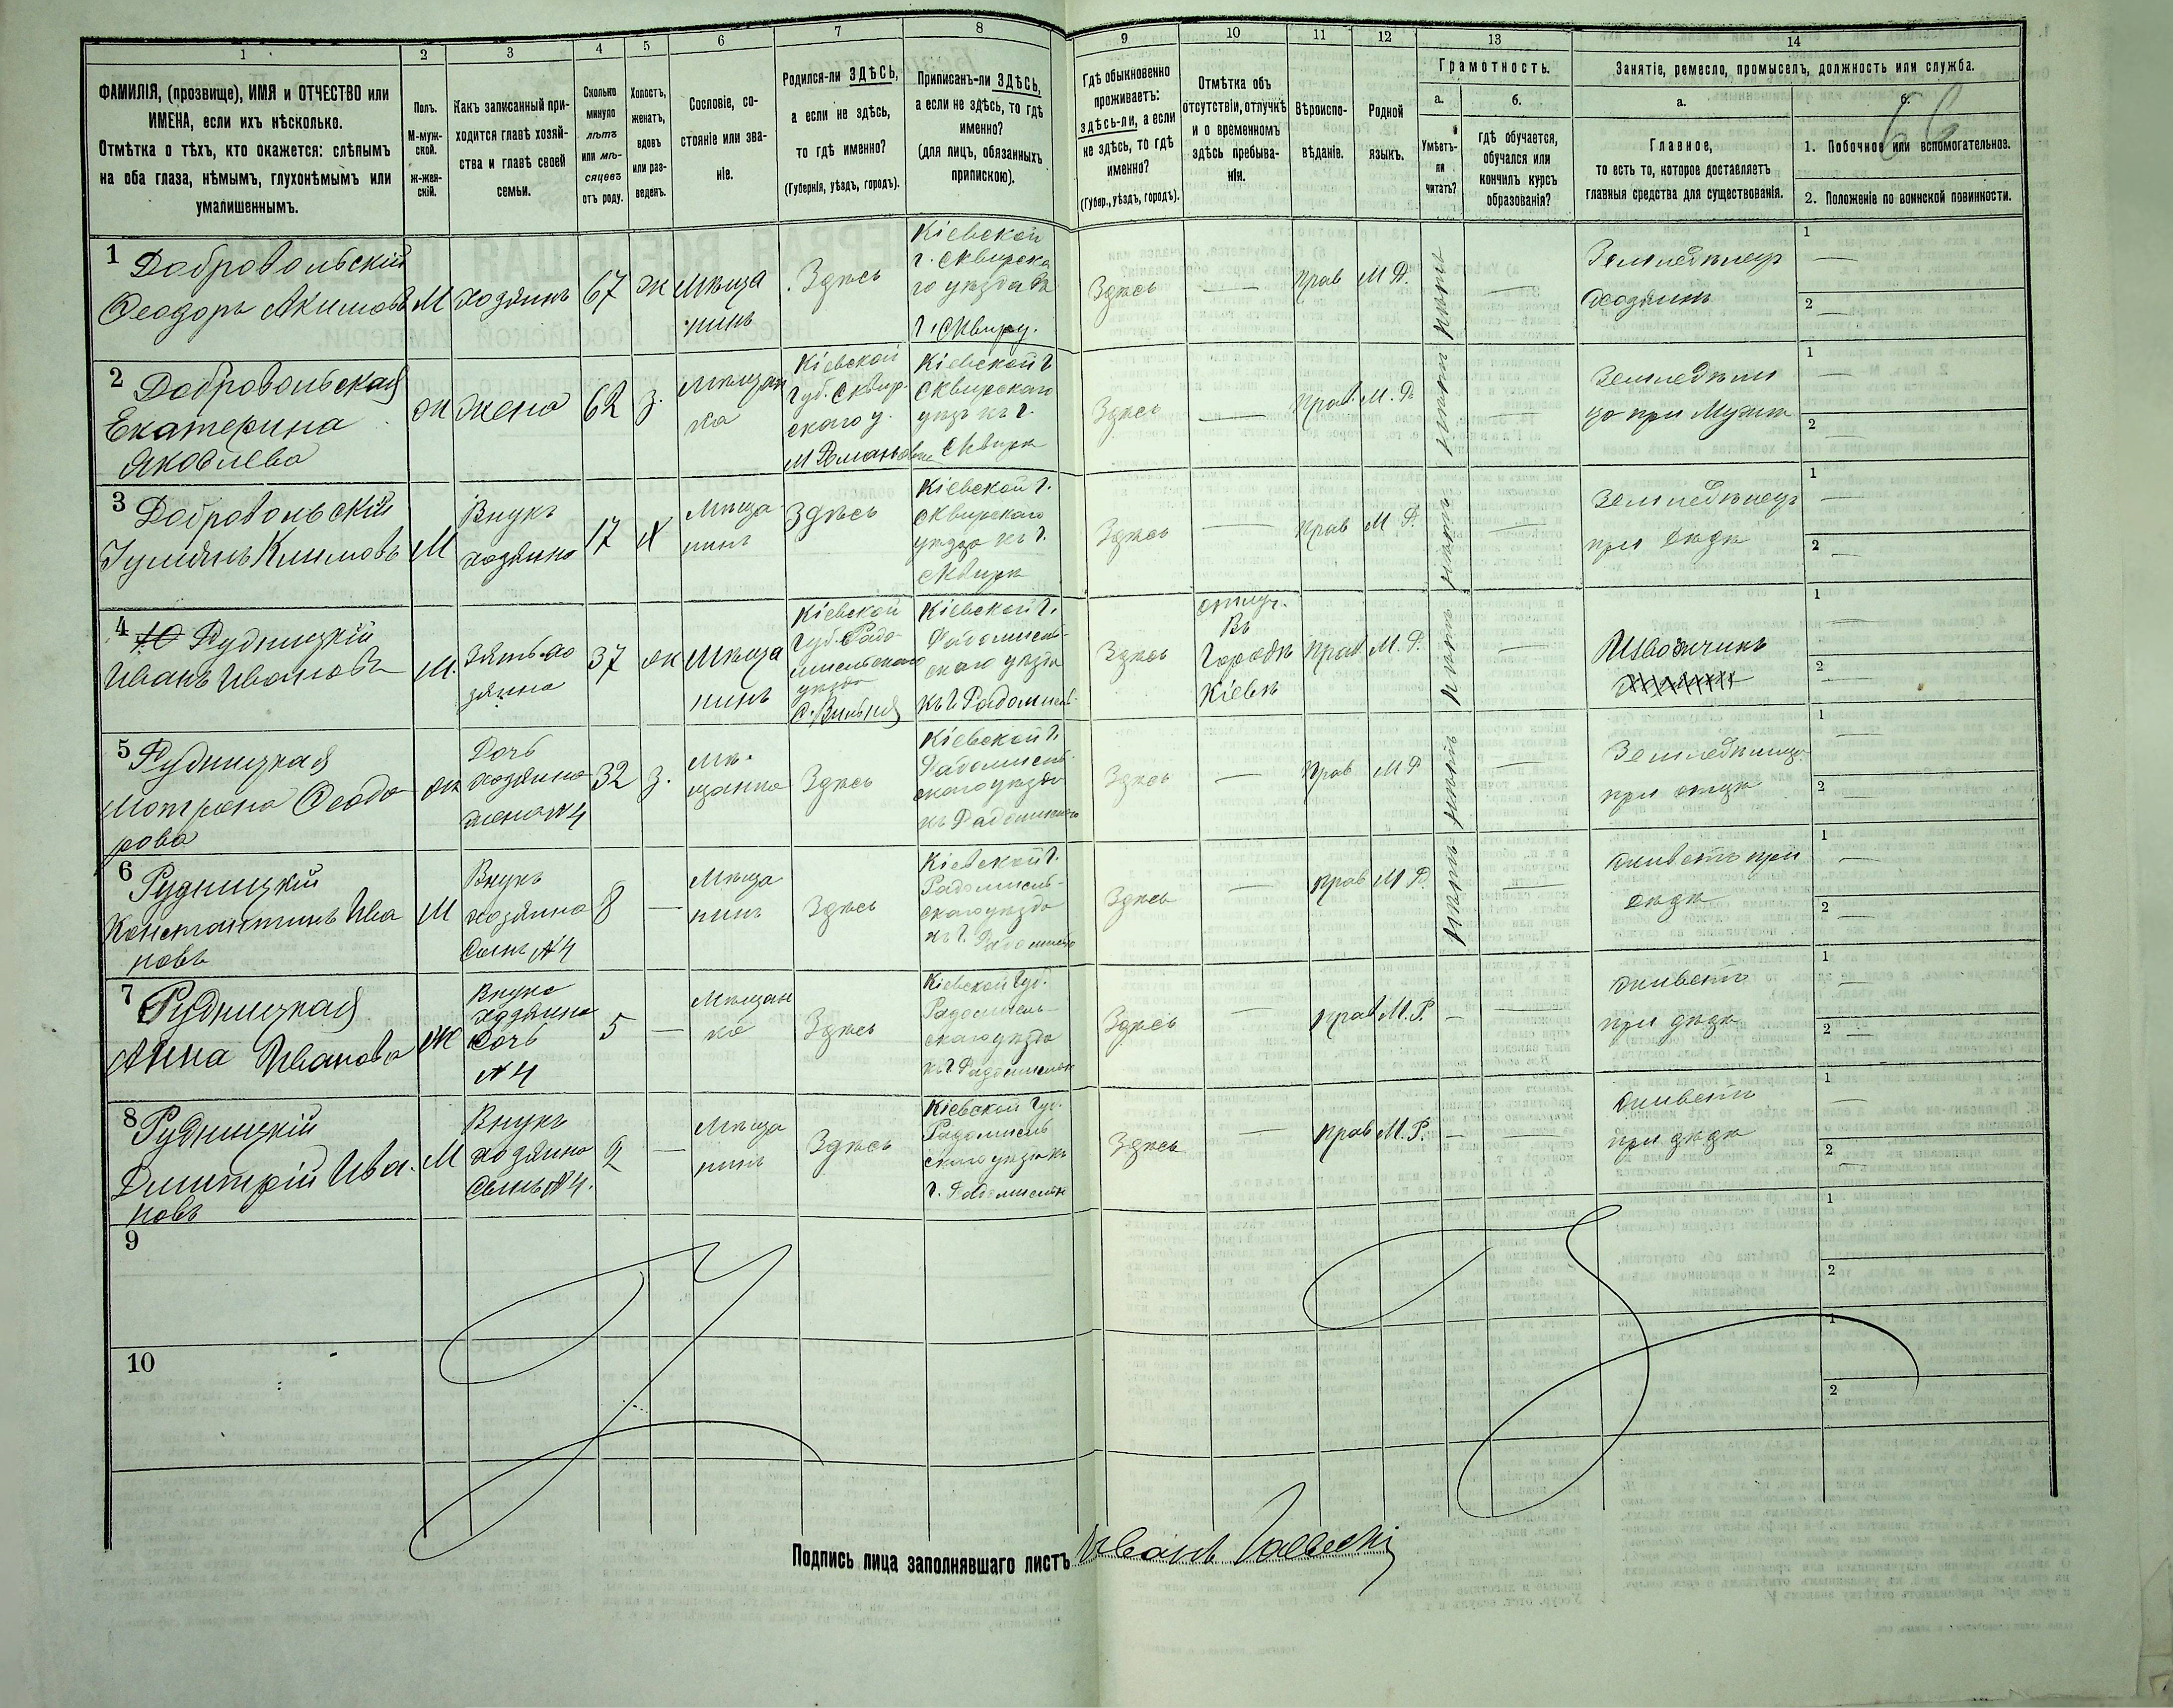 1
2
3
4
5
6
7
8
9
10
11
12
13
14
ФАМИЛІЯ, (прозвище), ИМЯ и ОТЧЕСТВО или
ИМЕНА, если ихъ нѣсколько.
Отмѣтка о тѣхъ, кто окажется: слѣпымъ
на оба глаза, нѣмымъ, глухонѣмымъ или
умалишеннымъ.
Полъ.
М-муж-
ской.
ж-жен-
скій.
Какъ записанный при-
ходится главѣ хозяй-
ства и главѣ своей
семьи.
Сколько
минуло
лѣтъ
или мѣ-
сяцевъ
отъ роду.
Холостъ,
женатъ,
вдовъ
или раз-
веденъ.
Сословіе, со-
стояніе или зва-
ніе.
Родился-ли ЗДѢСЬ,
а если не здѣсь,
то гдѣ именно?
(Губернія, уѣздъ, городъ).
Приписанъ-ли ЗДѢСЬ,
а если не здѣсь, то гдѣ
именно?
(для лицъ, обязанныхъ
припискою).
Гдѣ обыкновенно
проживаетъ:
здѣсь-ли, а если
не здѣсь, то гдѣ
именно?
(Губер., уѣздъ, городъ).
Отмѣтка объ
отсутствіи, отлучкѣ
и о временномъ
здѣсь пребыва-
ніи.
Вѣроиспо-
вѣданіе.
Родной
языкъ.
Грамотность.
а.
Умѣетъ-
ли
читать?
б.
гдѣ обучается,
обучался или
кончилъ курсъ
образованія?
Занятіе, ремесло, промыселъ, должность или служба.
а.
Главное,
то есть то, которое доставляетъ
главныя средства для существованія.
б.
66
1. Побочное или вспомогательное.
2. Положеніе по воинской повинности.
1 Добровольскій
Ѳеодоръ Акимовъ
М
хозяинъ
67
ж
Мѣща
нинъ
Здѣсь
Кіевской
г. Сквирска
го уѣзда
г. Сквиру.
Здѣсь
—
прав
М Р.
нѣтъ
—
Земледѣлецъ
хозяинъ
1 —
2 —
2 Добровольская
Екатерина
Яковлева
ж
жена
62
з.
Мѣщан
ка
Кіевской
губ. Сквир.
скаго у.
Кіевской г
Сквирскаго
уѣзд къ г.
Сквирѣ
Здѣсь
—
прав.
М. Р.
нѣтъ
Земледѣли
ца при мужѣ
1 —
2 —
3 Добровольскій
Климовъ
М
Внукъ
хозяина
17
Х
Мѣща-
нинъ
Здѣсь
Кіевской г.
Сквирскаго
уѣзда къ г.
Сквирѣ
Здѣсь
—
прав
М Р.
нѣтъ
—
Земледѣлецъ
при дѣдѣ
1 —
2 —
4 Рудницкій
Иванъ Ивановъ
М.
Зять хо
зяина
37
ж
Мѣща
нинъ
Кіевской
губ. Радо-
мысльскаго
уѣзда
Кіевской г.
Радомысль-
скаго уѣзда
къ г Радомысль
Здѣсь
отлуч.
въ
городѣ
Кіевѣ
прав
М. Р.
нѣтъ
—
Извозчикъ
1 —
2 —
5 Рудницкая
Мотрона Ѳеодо
рова
ж
Дочь
хозяина
жена №4
32
з.
Мѣ-
щанка
Здѣсь
Кіевской г.
Радомысль-
скаго уѣзда
къ Радомыслю
Здѣсь
—
прав
М Р
нѣтъ
—
Земледѣлица
при отцѣ
1 —
2 —
6 Рудницкій
Константинъ Ива
новъ
М
Внукъ
хозяина
Сынъ №4
8
—
Мѣща
нинъ
Здѣсь
Кіевской г.
Радомысль-
скаго уѣзда
къ г. Радомыслю
Здѣсь
—
прав
М Р.
нѣтъ
—
живетъ при
дѣдѣ
1 —
2 —
7 Рудницкая
Анна Иванова
Ж
Внука
хозяина
Дочь
№ 4
5
—
Мѣщан
ка
Здѣсь
Кіевской губ.
Радомысль-
скаго уѣзда
къ г Радомыслю
Здѣсь
—
прав
М. Р.
—
—
живетъ
при дѣдѣ
1 —
2 —
8 Рудницкій
Дмитрій Ива-
новъ
М
Внукъ
хозяина
Сынъ №4.
2
—
Мѣща
нинъ
Здѣсь
Кіевской губ.
Радомысль
скаго уѣзда къ
г. Радомыслю
Здѣсь
—
прав
М. Р.
—
—
живетъ
при дѣдѣ
1 —
2 —
9
1
2
10
1
2
Подпись лица заполнявшаго листъ